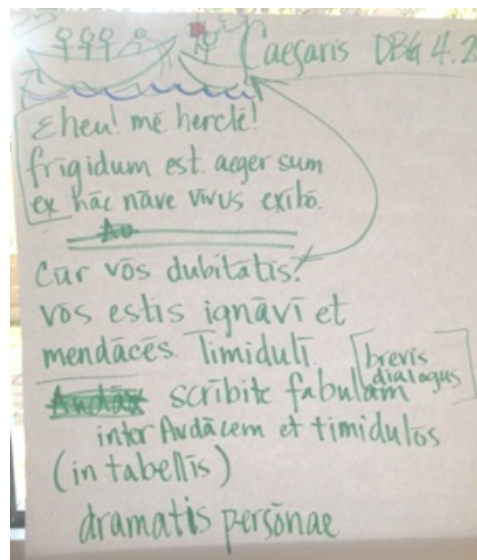 Caesaris DBG 4.2
Eheu! mē herclē!
frīgidum est. aeger sum
ex hāc nāve vīvus exībō.
Cūr vōs dubitātis?
vōs estis ignāvī et
mendācēs. Timidulī.
[brevis
dialogus]
scrībite fabulam
inter Audācem et timidulōs
(in tabellīs)
dramatis persōnae